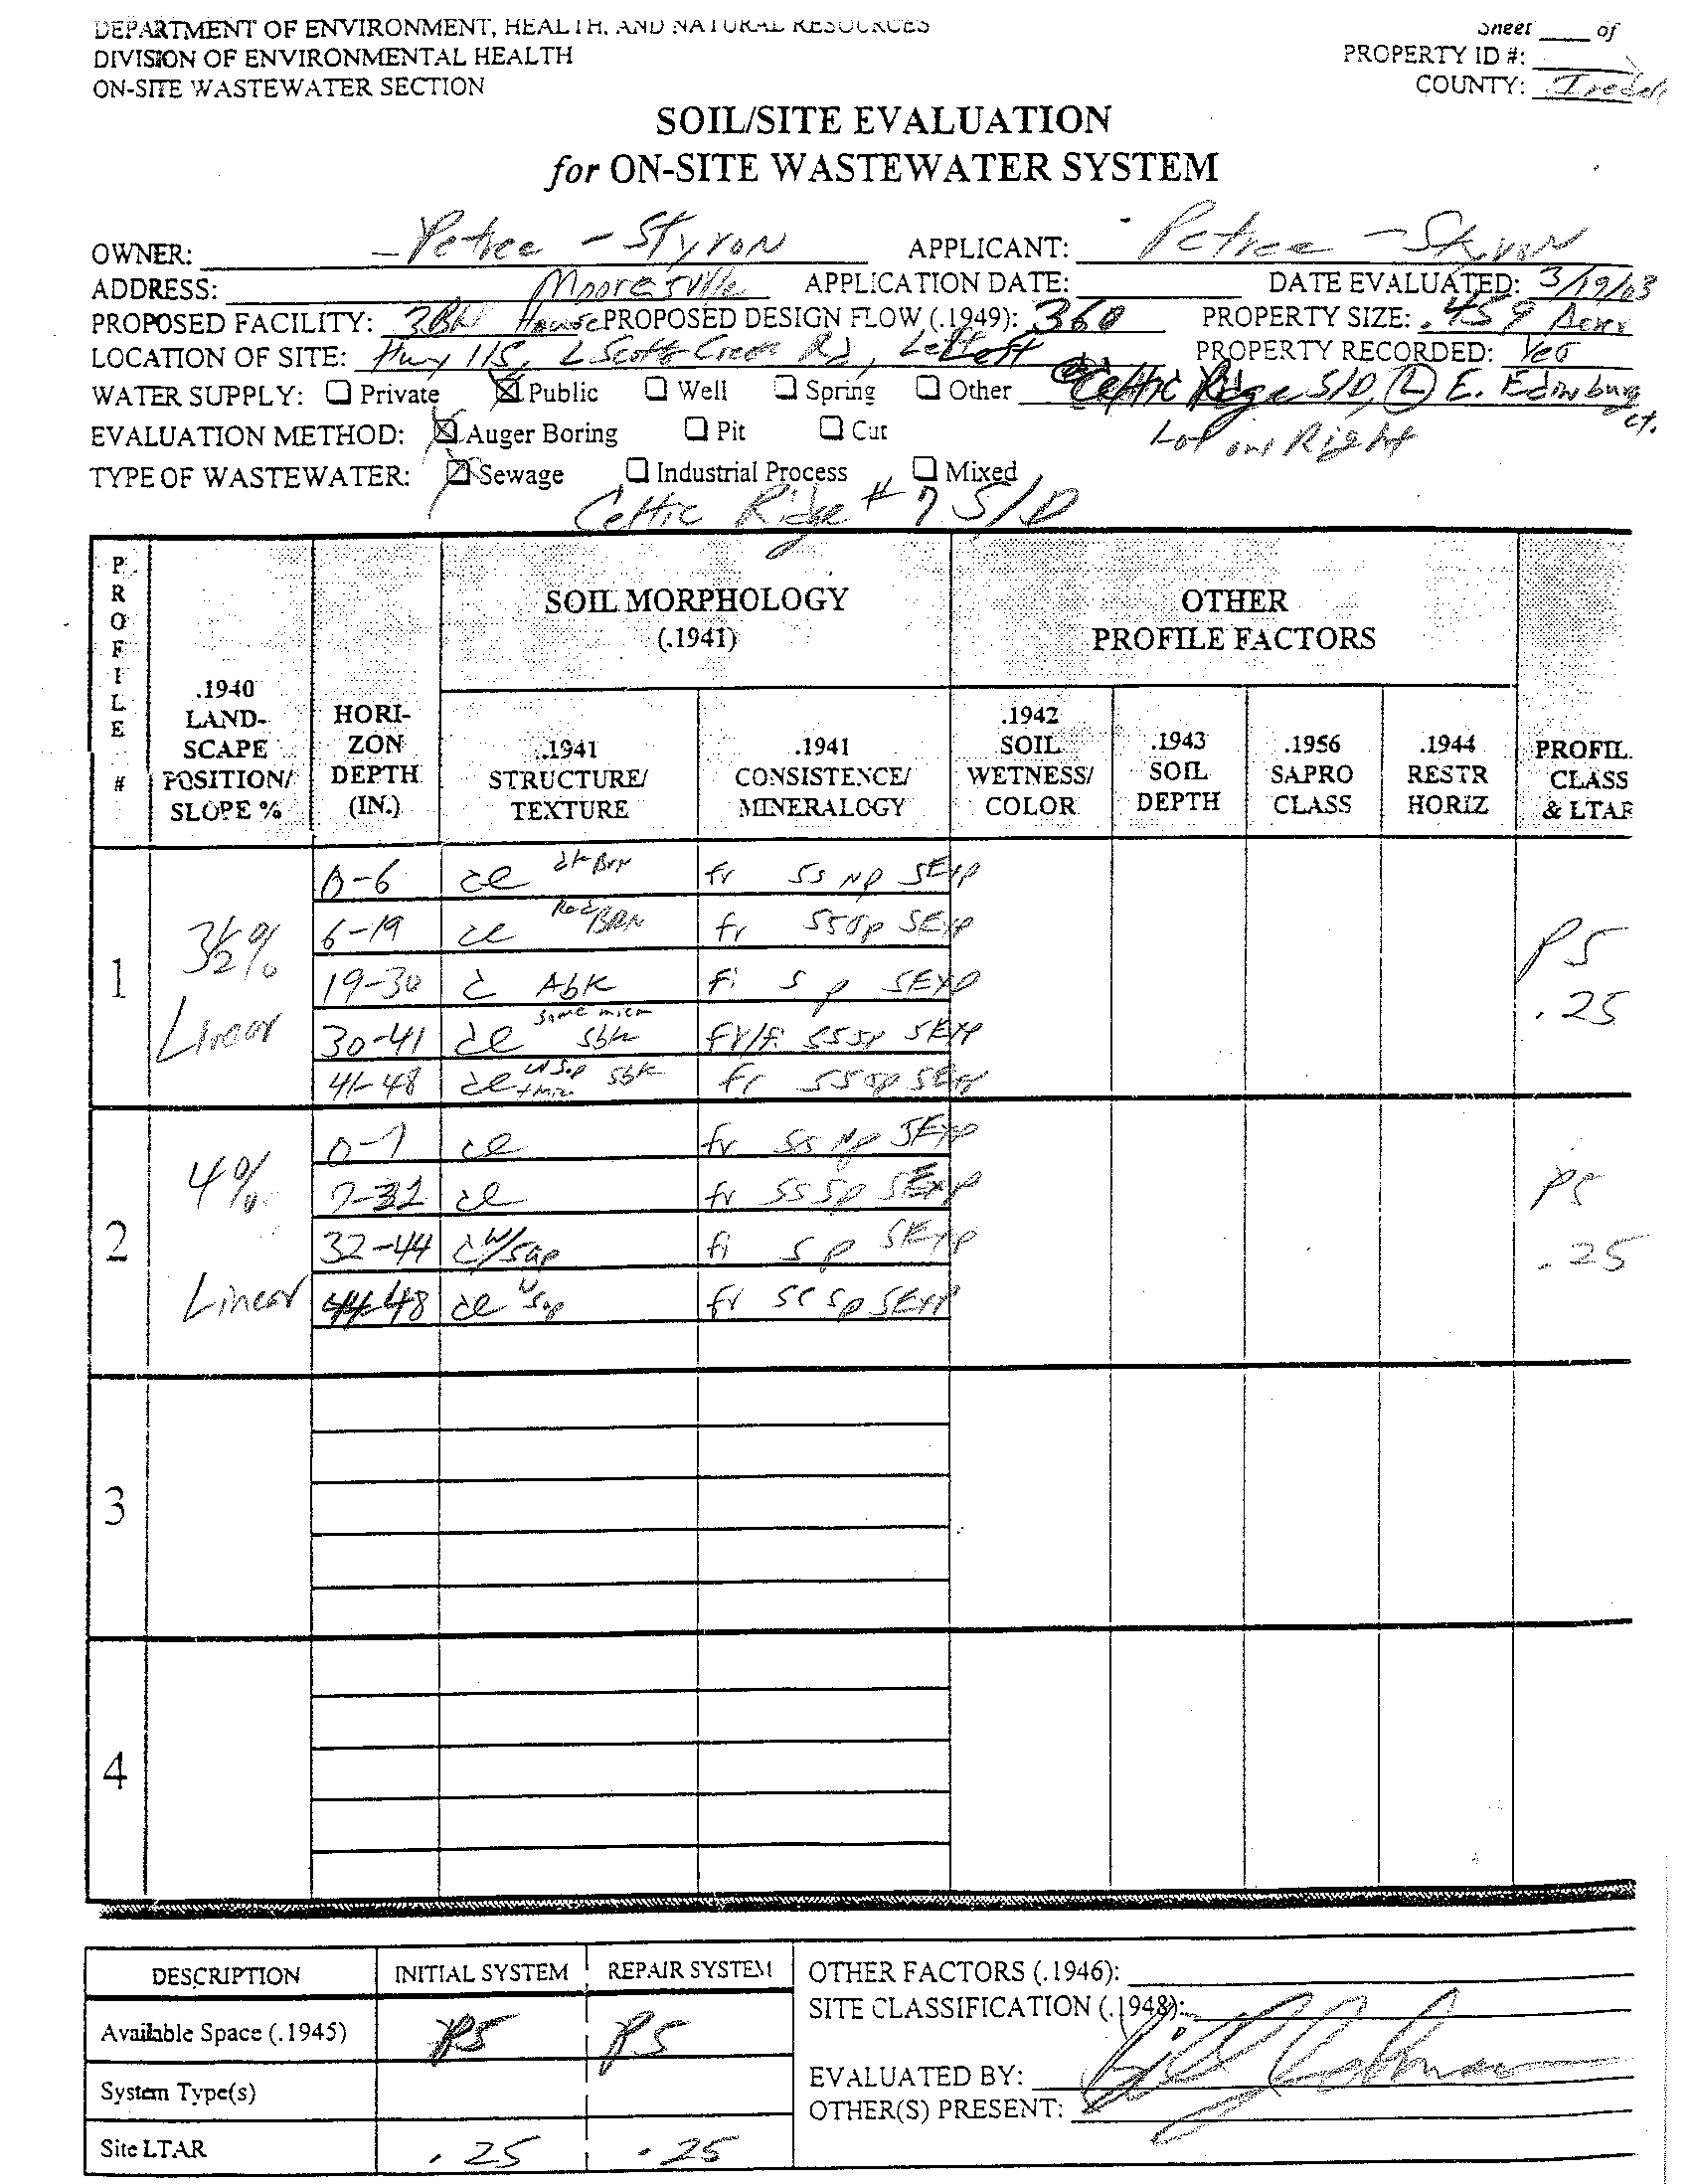 DEPARTMENT OF ENVIRONMENT, HEALTH, AND NATURAL RESOURCES
DIVISION OF ENVIRONMENTAL HEALTH
ON-SITE WASTEWATER SECTION
Sheet ____ of
PROPERTY ID #:
COUNTY: Iredell
SOIL/SITE EVALUATION
for ON-SITE WASTEWATER SYSTEM
OWNER: Petree - Styron APPLICANT: Petree - Styron
ADDRESS: Mooresville APPLICATION DATE: DATE EVALUATED: 3/19/03
PROPOSED FACILITY: 3BR House PROPOSED DESIGN FLOW (.1949): 360 PROPERTY SIZE: .459 Acres
LOCATION OF SITE: Hwy 115, L Scotts Creek Rd, Left Left PROPERTY RECORDED: Yes
WATER SUPPLY: Private Public Well Spring Other @ Celtic Ridge S/D, (L) E. Edinburg ct.
EVALUATION METHOD: Auger Boring Pit Cut Lot on Right
TYPE OF WASTEWATER: Sewage Industrial Process Mixed
Celtic Ridge # 7 S/D
PROFILE #
.1940 LAND-SCAPE POSITION/ SLOPE %
HORI-ZON DEPTH (IN.)
SOIL MORPHOLOGY (.1941)
OTHER PROFILE FACTORS
.1941 STRUCTURE/ TEXTURE
.1941 CONSISTENCE/ MINERALOGY
.1942 SOIL WETNESS/ COLOR
.1943 SOIL DEPTH
.1956 SAPRO CLASS
.1944 RESTR HORIZ
PROFIL. CLASS & LTAR
1 3½% Linear PS .25
0-6 cl dk Brn fr ss np SEXP
6-19 cl Red BRN fr ss sp SEXP
19-30 c Abk fi s p SEXP
30-41 cl some mica sbk fr/fi ss sp SEXP
41-48 cl w sap + mica sbk fr ss sp SEXP
2 4% Linear PS .25
0-7 cl fr ss np SEXP
7-32 cl fr ss sp SEXP
32-44 c w/sap fi s p SEXP
44-48 cl w sap fr ss sp SEXP
3
4
DESCRIPTION INITIAL SYSTEM REPAIR SYSTEM
Available Space (.1945) PS PS
System Type(s)
Site LTAR .25 .25
OTHER FACTORS (.1946):
SITE CLASSIFICATION (.1948):
EVALUATED BY:
OTHER(S) PRESENT: